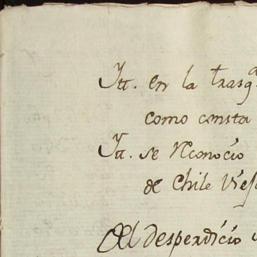 Ytt. en la trasq
como consta
Ytt. se Reconocio
de Chile Viej
El desperdicio